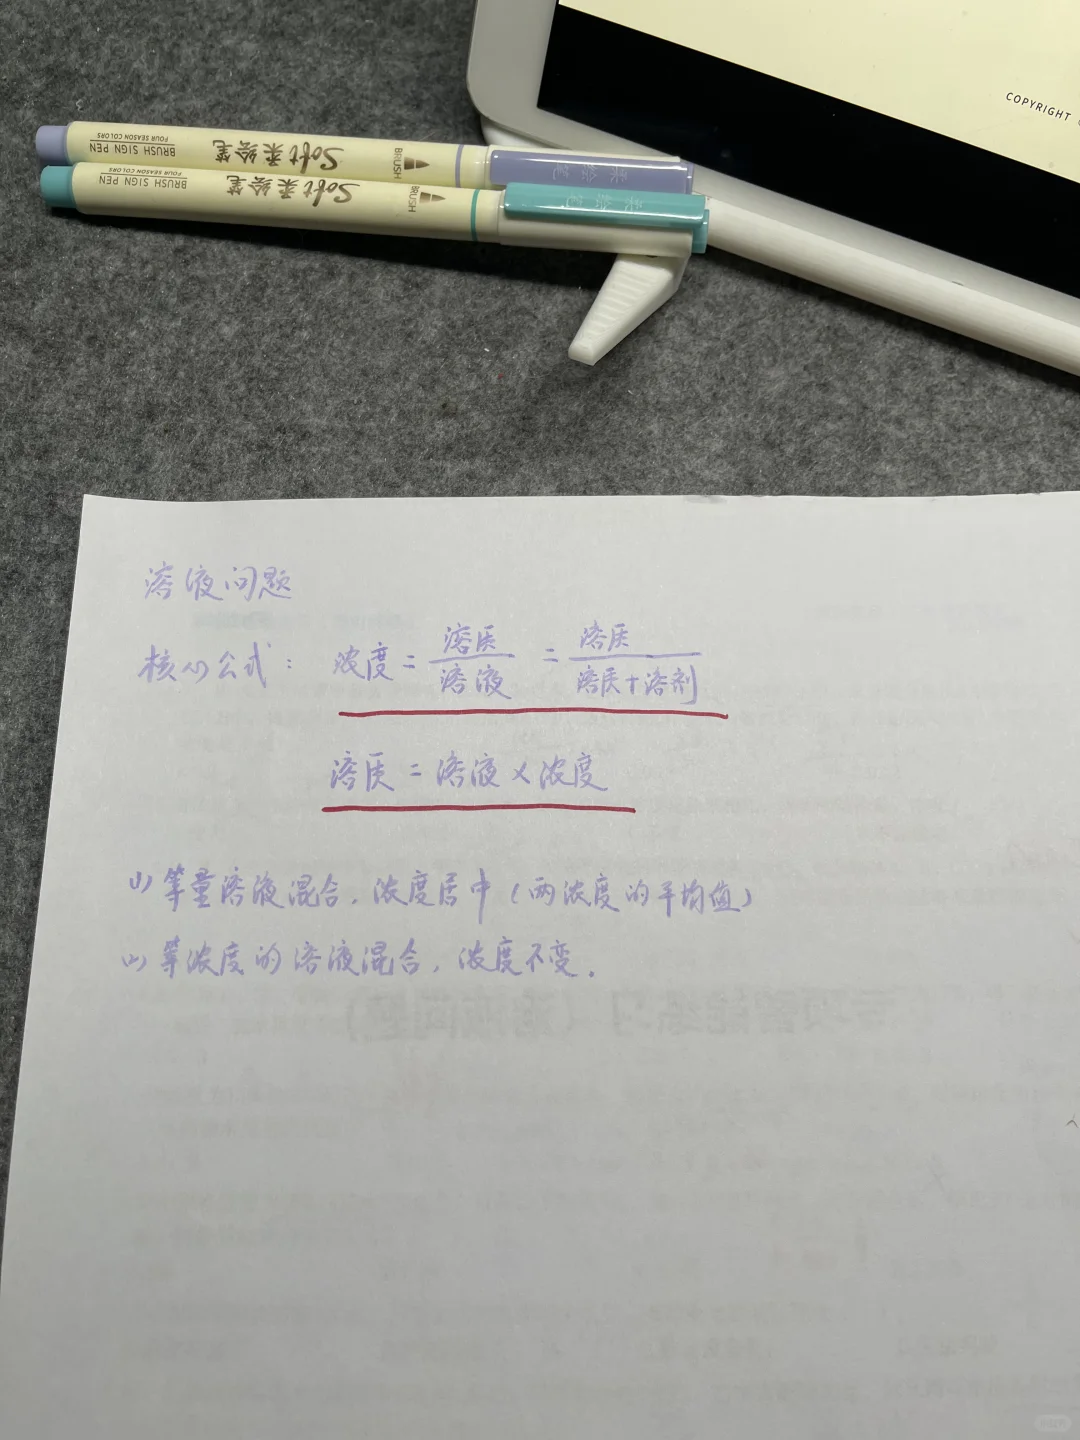 COPYRIGHT
BRUSH SIGN PEN
FOUR SEASON COLORS
Soft柔绘笔
BRUSH
BRUSH SIGN PEN
FOUR SEASON COLORS
Soft柔绘笔
BRUSH
溶液问题
核心公式：浓度=溶质/溶液=溶质/溶质+溶剂
溶质=溶液×浓度
(1)等量溶液混合，浓度居中(两浓度的平均值)
(2)等浓度的溶液混合，浓度不变.
专项智能练习（溶液问题）